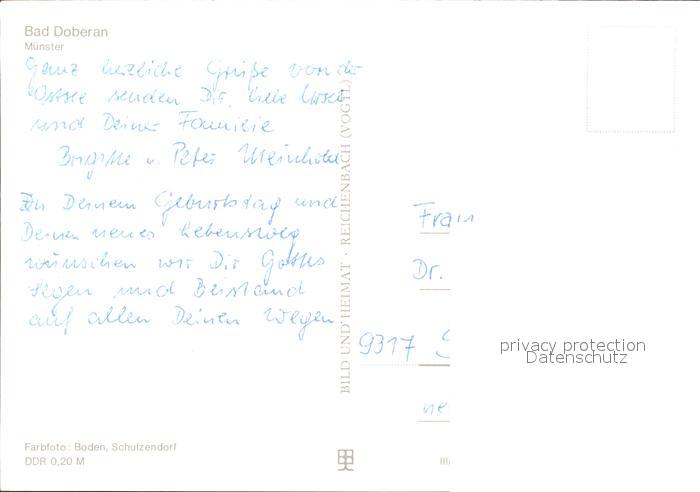 Bad Doberan
Münster
Ganz herzliche Grüße von der
Ostsee senden Dir, liebe Ursel
und Deiner Familie
Brigitte u. Peter Meinhold
Zu Deinem Geburtstag und
Deinen neues Lebensweg
wünschen wir Dir Gottes
Segen und Beistand
auf allen Deinen Wegen
BILD UND HEIMAT · REICHENBACH (VOGTL)
Frau
Dr.
9317 S
ne
privacy protection
Datenschutz
Farbfoto: Boden, Schulzendorf
DDR 0,20 M
III/